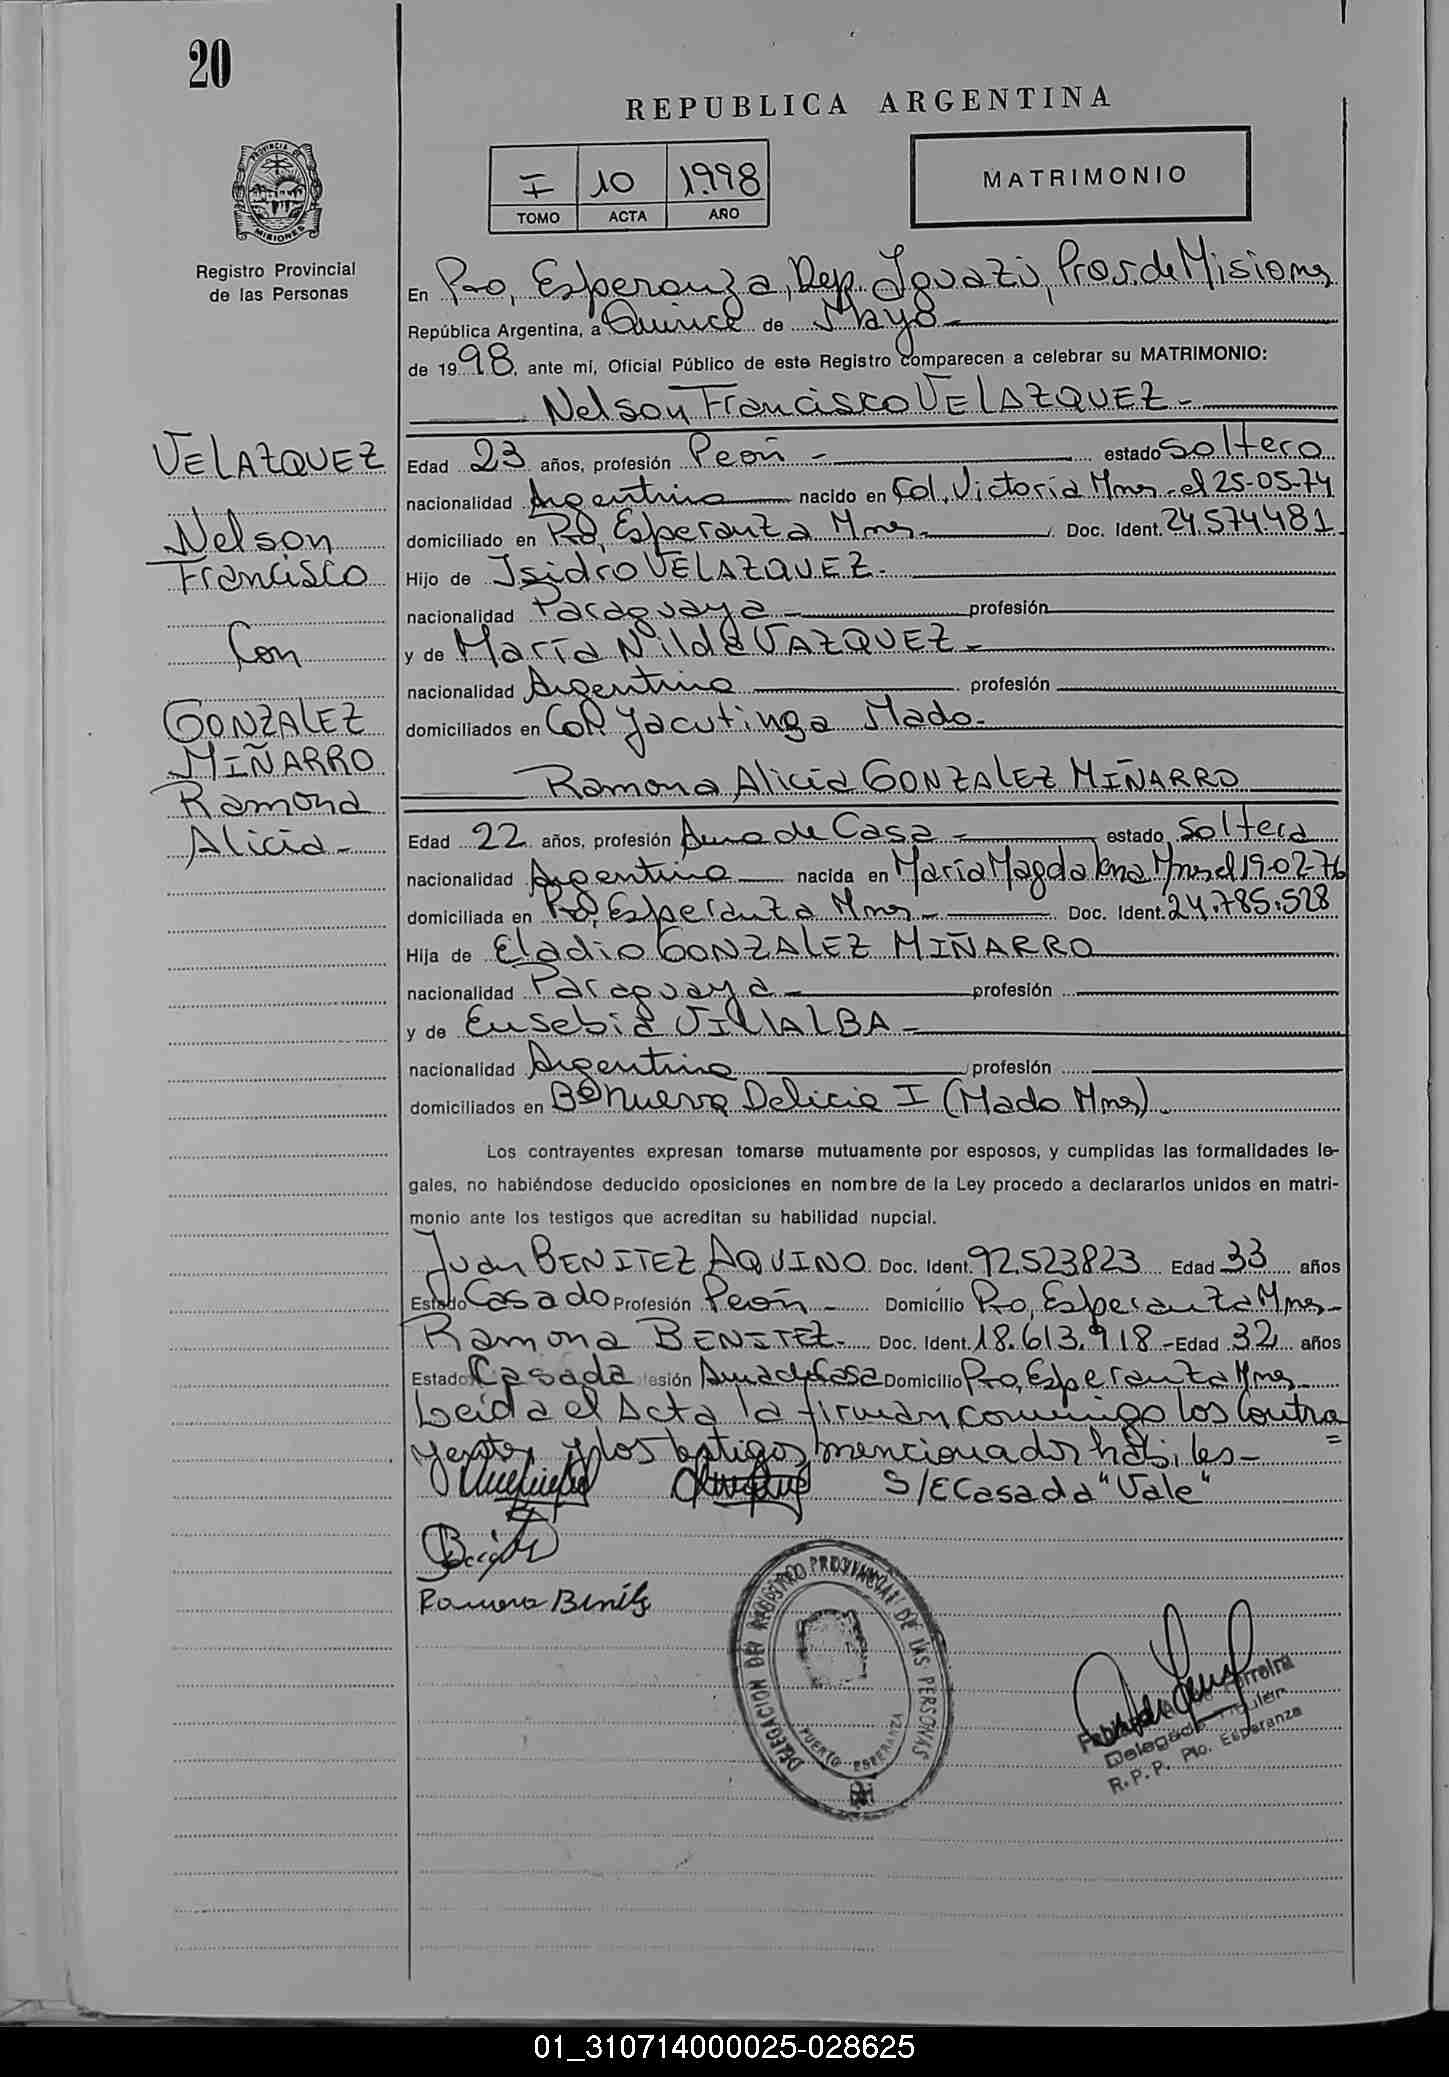 20
REPUBLICA ARGENTINA
I 10 1998
TOMO ACTA AÑO
MATRIMONIO
PROVINCIA DE MISIONES
Registro Provincial
de las Personas
En Pto, Esperanza, Dep. Iguazú, Prov. de Misiones
República Argentina, a Quince de Mayo
de 1998, ante mí, Oficial Público de este Registro comparecen a celebrar su MATRIMONIO:
Nelson Francisco VELAZQUEZ-
VELAZQUEZ
Nelson
Francisco
Con
GONZALEZ
MIÑARRO
Ramona
Alicia-
Edad 23 años, profesión Peón - estado soltero
nacionalidad Argentina nacido en Col. Victoria Mnes-el 25-05-74
domiciliado en Pto, Esperanza Mnes- Doc. Ident. 24.574.481
Hijo de Isidro VELAZQUEZ-
nacionalidad Paraguaya - profesión
y de María Nilda VAZQUEZ-
nacionalidad Argentina profesión
domiciliados en Col Yacutinga Mado-
Ramona Alicia GONZALEZ MIÑARRO
Edad 22 años, profesión Ama de Casa - estado soltera
nacionalidad Argentina nacida en María Magdalena Mnes el 19-02-76
domiciliada en Pto, Esperanza Mnes - Doc. Ident. 24.785.528
Hija de Eladio GONZALEZ MIÑARRO
nacionalidad Paraguaya - profesión
y de Eusebia VILLALBA -
nacionalidad Argentina profesión
domiciliados en Bº Nueva Delicia I (Mado Mnes)
Los contrayentes expresan tomarse mutuamente por esposos, y cumplidas las formalidades le-
gales, no habiéndose deducido oposiciones en nombre de la Ley procedo a declararlos unidos en matri-
monio ante los testigos que acreditan su habilidad nupcial.
Juan BENITEZ AQUINO Doc. Ident. 92.523823 Edad 33 años
Estado Casado Profesión Peón - Domicilio Pto, Esperanza Mnes-
Ramona BENITEZ- Doc. Ident. 18.613.918-Edad 32 años
Estado Casada esión Ama de Casa Domicilio Pto, Esperanza Mnes
Leida el Acta la firman conmigo los contra
yentes y los testigos mencionados hábiles- =
S/E Casada "Vale"
Ramona Benítez
DELEGACION DEL REGISTRO PROVINCIAL DE LAS PERSONAS
PUERTO ESPERANZA
Ferreira
Delegado Titular
R.P.P. Pto. Esperanza
01_310714000025-028625